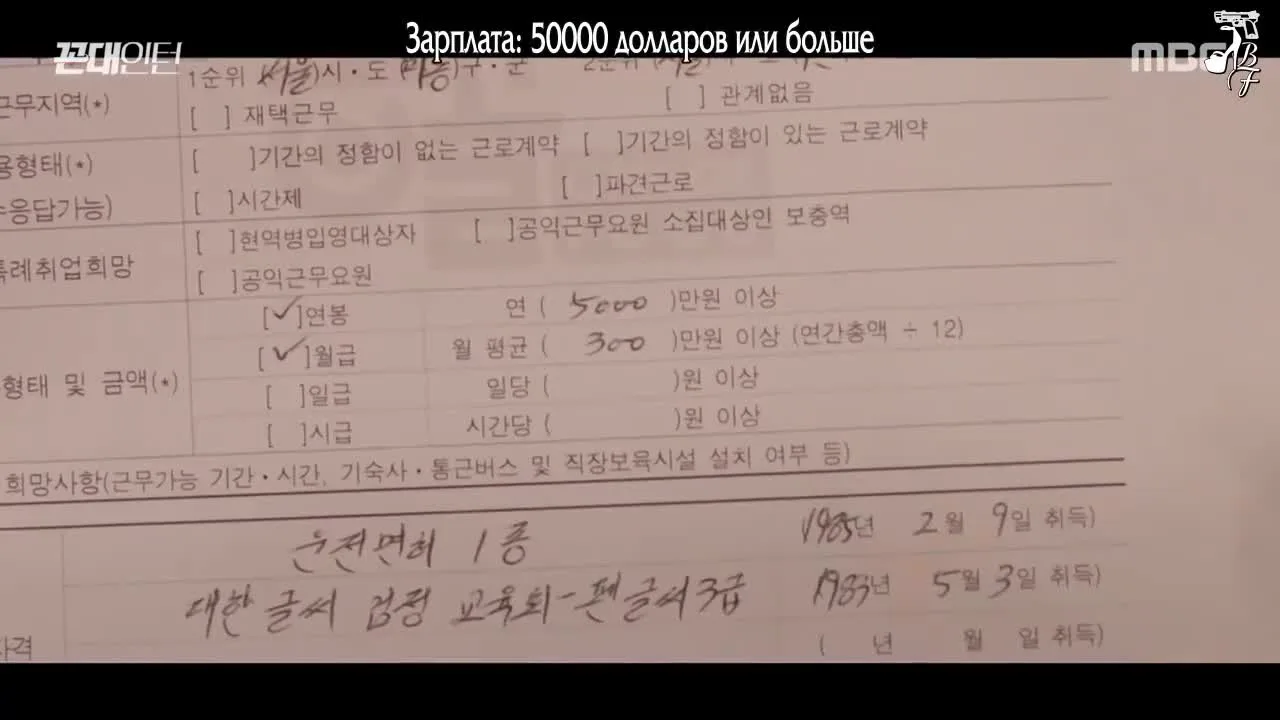 Зарплата: 50000 долларов или больше
꼰대인턴
MBC
BF
1순위 (서울)시·도 (마롱)구·군
근무지역(*)
[ ] 재택근무 [ ] 관계없음
용형태(*)
[ ]기간의 정함이 없는 근로계약 [ ]기간의 정함이 있는 근로계약
수응답가능)
[ ]시간제 [ ]파견근로
특례취업희망
[ ]현역병입영대상자 [ ]공익근무요원 소집대상인 보충역
[ ]공익근무요원
[✓]연봉 연 ( 5000 )만원 이상
[✓]월급 월 평균 ( 300 )만원 이상 (연간총액 ÷ 12)
형태 및 금액(*)
[ ]일급 일당 ( )원 이상
[ ]시급 시간당 ( )원 이상
희망사항(근무가능 기간·시간, 기숙사·통근버스 및 직장보육시설 설치 여부 등)
운전면허 1종 1985년 2월 9일 취득)
대한글씨 검정 교육회-펜글씨 3급 1983년 5월 3일 취득)
자격
( 년 월 일 취득)